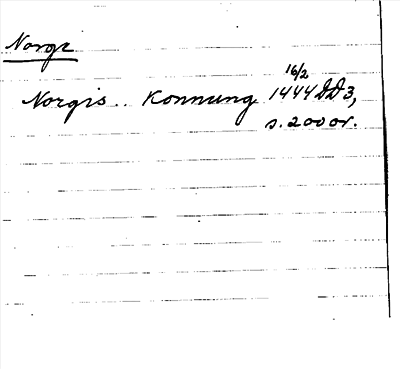 Norge
Norgis.. Konnung 16/2 1444 DD3,
s. 200 or.